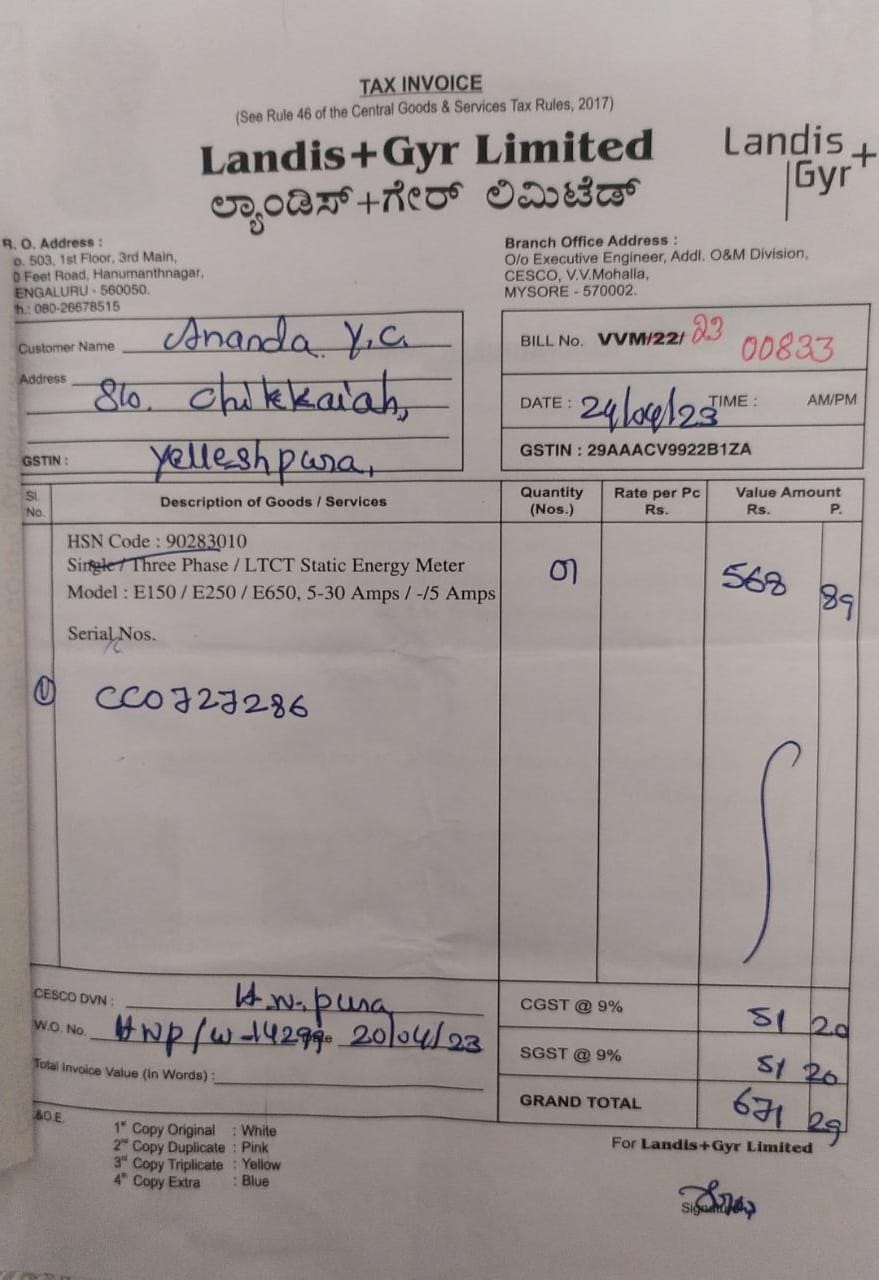 TAX INVOICE
(See Rule 46 of the Central Goods & Services Tax Rules, 2017)
Landis+Gyr Limited
ಲ್ಯಾಂಡಿಸ್+ಗೇರ್ ಲಿಮಿಟೆಡ್
Landis
Gyr+
R. O. Address :
o. 503, 1st Floor, 3rd Main,
0 Feet Road, Hanumanthnagar,
ENGALURU - 560050.
h.: 080-26678515
Branch Office Address :
O/o Executive Engineer, Addl. O&M Division,
CESCO, V.V.Mohalla,
MYSORE - 570002.
Customer Name Ananda Y.C.
Address S/o. Chikkaiah,
GSTIN : Yelleshpura,
BILL No. VVM/22/23 00833
DATE : 24/04/23 TIME : AM/PM
GSTIN : 29AAACV9922B1ZA
Sl. No. Description of Goods / Services Quantity (Nos.) Rate per Pc Rs. Value Amount Rs. P.
HSN Code : 90283010
Single / Three Phase / LTCT Static Energy Meter 01 568 89
Model : E150 / E250 / E650, 5-30 Amps / -/5 Amps
Serial Nos.
1) CC0727286
CESCO DVN : H.N. pura
W.O. No. HNP/W-14299 20/04/23
Total Invoice Value (In Words) :
CGST @ 9% 51 20
SGST @ 9% 51 20
GRAND TOTAL 671 29
&O.E.
1st Copy Original : White
2nd Copy Duplicate : Pink
3rd Copy Triplicate : Yellow
4th Copy Extra : Blue
For Landis+Gyr Limited